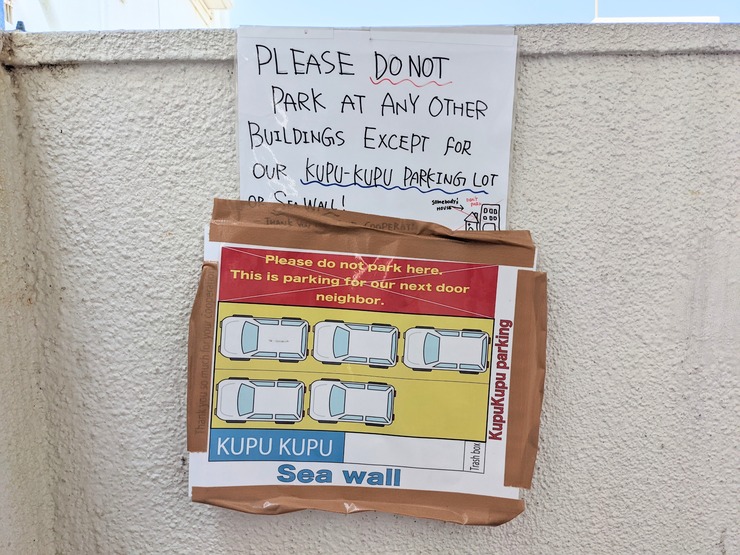 PLEASE DO NOT
PARK AT ANY OTHER
BUILDINGS EXCEPT FOR
OUR KUPU-KUPU PARKING LOT
OR SEA WALL!
somebody's
HOUSE
THANK YOU COOPERATI
Please do not park here.
This is parking for our next door
neighbor.
KupuKupu parking
Thank you so much for your
KUPU KUPU
Trash box
Sea wall